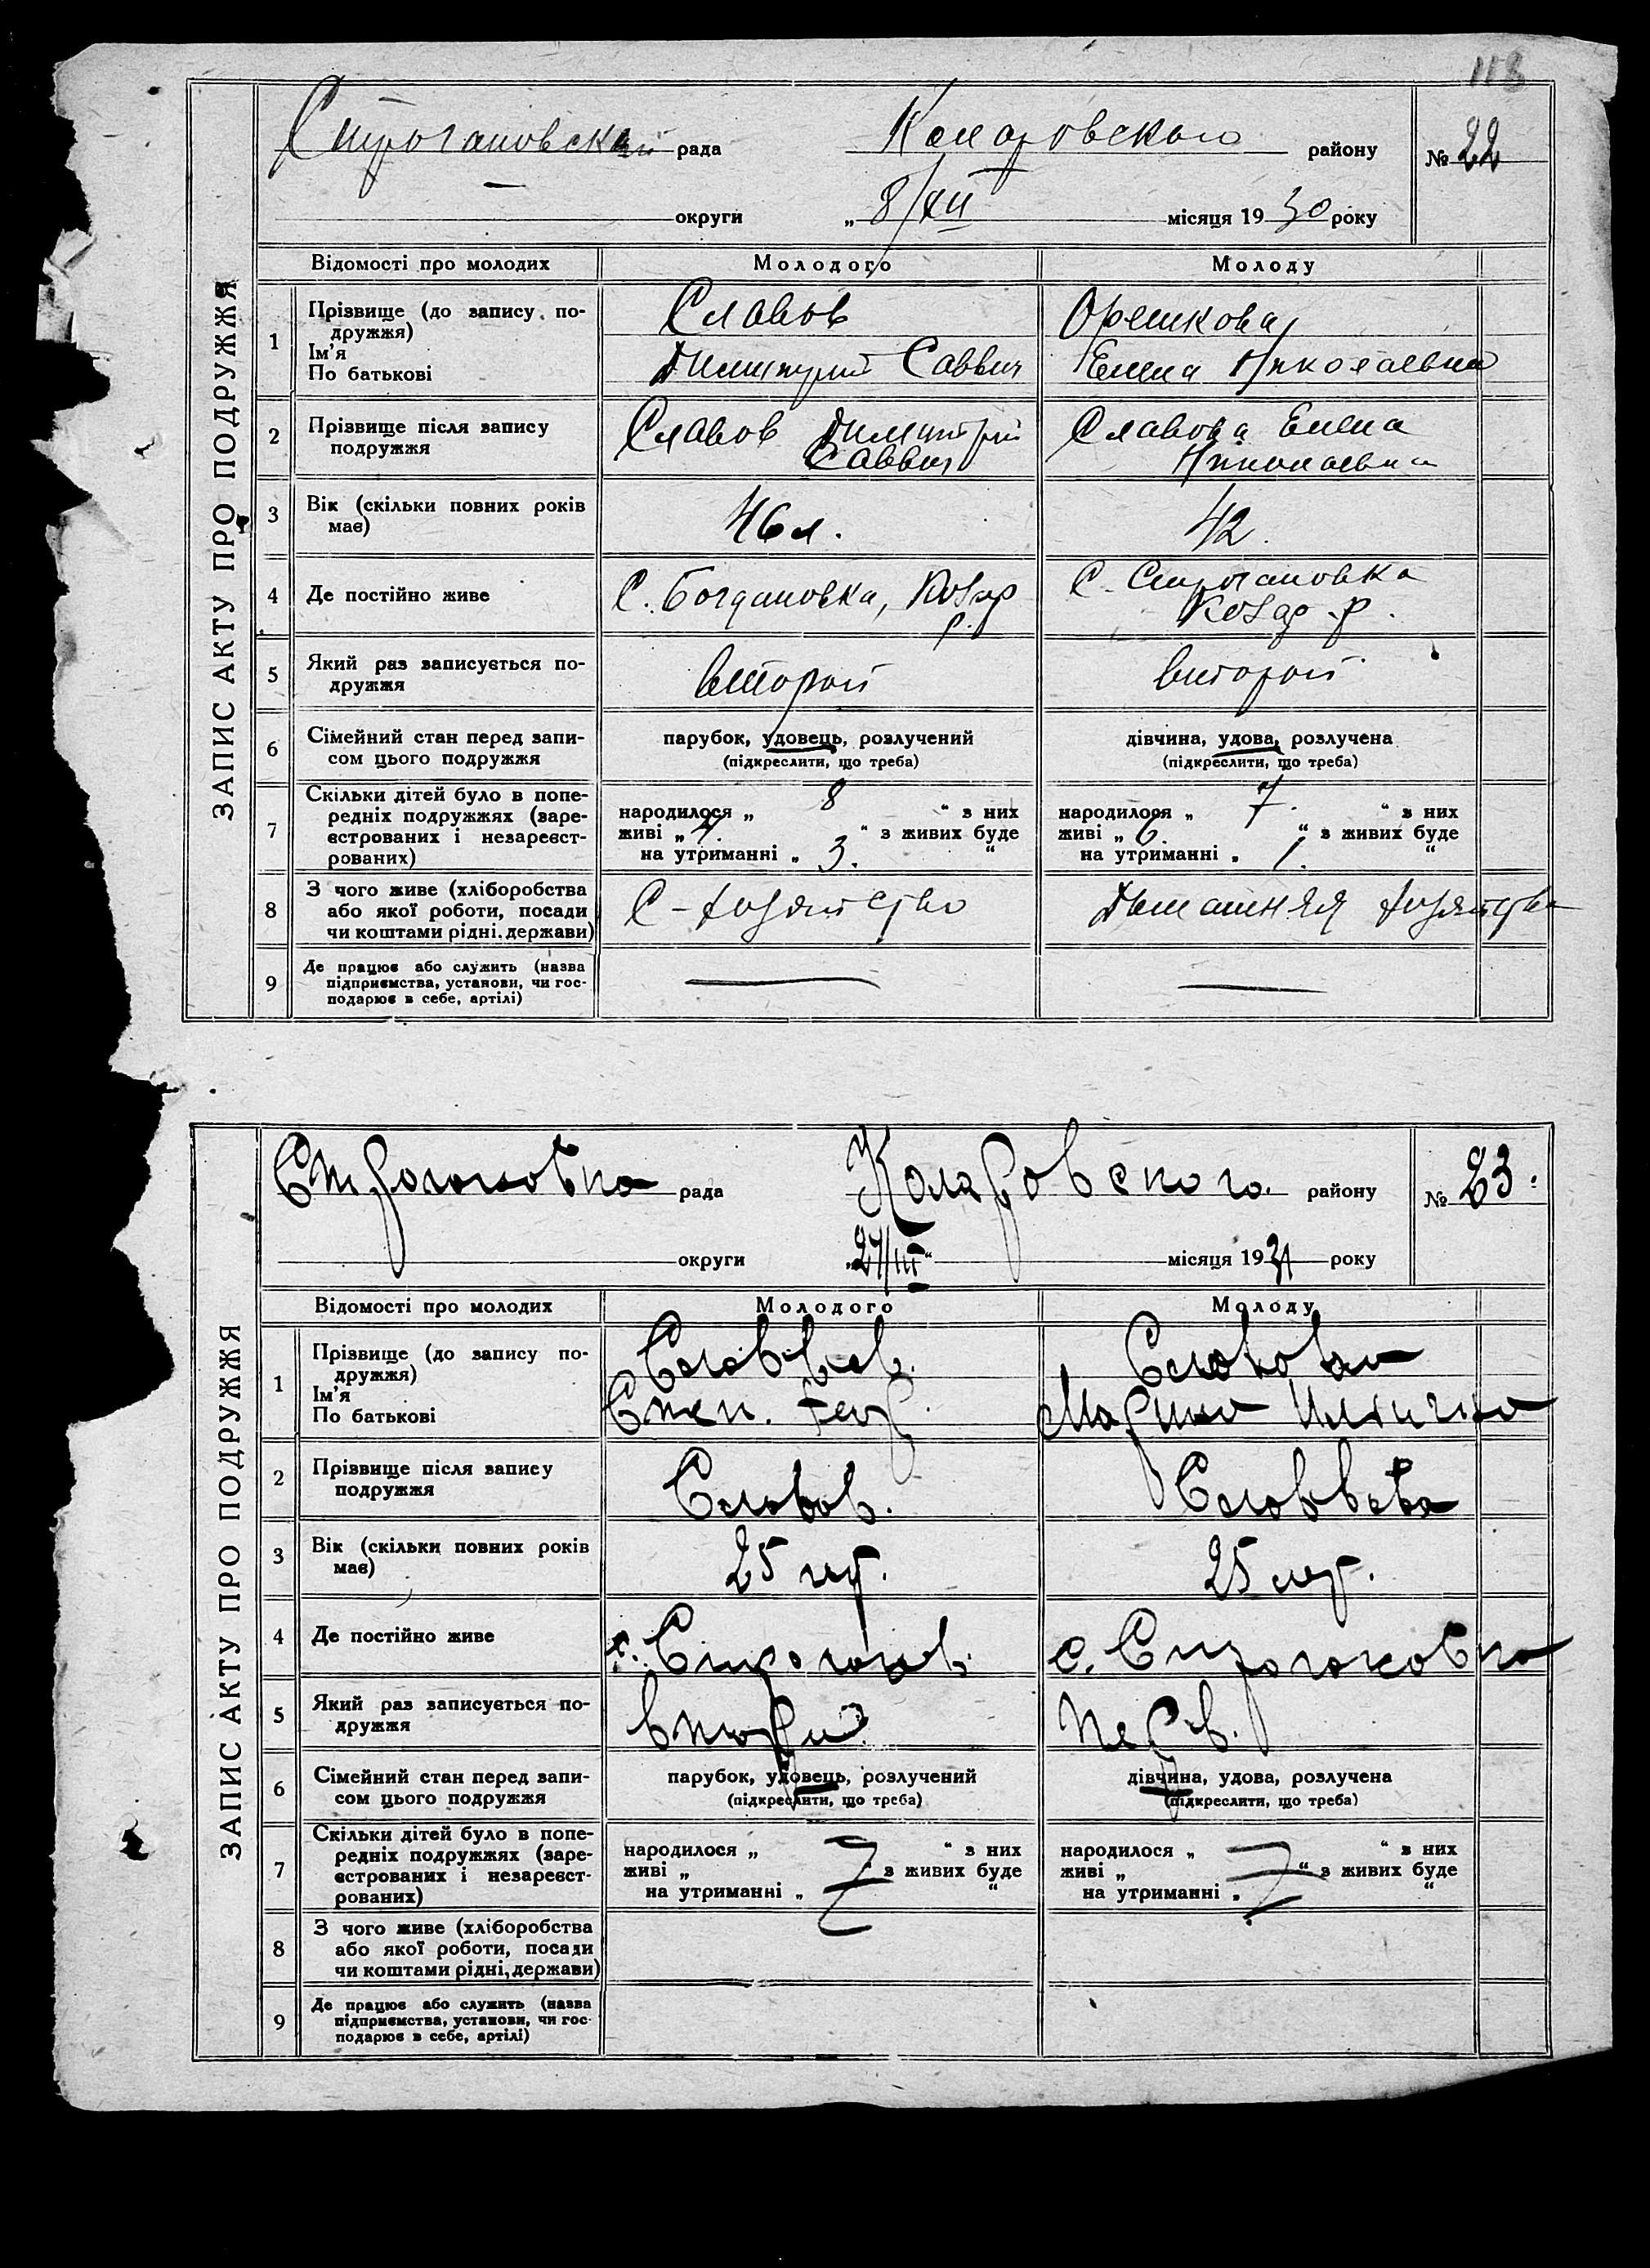 118
ЗАПИС АКТУ ПРО ПОДРУЖЖЯ
Строгановская рада Коларовского району № 22
округи „ 8/XII місяця 1930 року
Відомості про молодих Молодого Молоду
1 Прізвище (до запису по-
дружжя)
Ім'я
По батькові
Славов
Димитрий Саввич
Орешкова
Елена Николаевна
2 Прізвище після запису
подружжя
Славов Димитрий
Саввич
Славова Елена
Николаевна
3 Вік (скільки повних років
має)
46 л.
42.
4 Де постійно живе
С. Богдановка,
р.
С. Строгановка
р.
5 Який раз записується по-
дружжя
второй
второй
6 Сімейний стан перед запи-
сом цього подружжя
парубок, удовець, розлучений
(підкреслити, що треба)
дівчина, удова, розлучена
(підкреслити, що треба)
7 Скільки дітей було в попе-
редніх подружжях (заре-
єстрованих і незареєст-
рованих)
народилося „ 8 “ з них
живі „ 4. “ з живих буде
на утриманні „ 3. “
народилося „ 7. “ з них
живі „ 6. “ з живих буде
на утриманні „ 1. “
8 З чого живе (хліборобства
або якої роботи, посади
чи коштами рідні, держави)
С-хозяйство
Домашняя хозяйства
9 Де працює або служить (назва
підприємства, установи, чи гос-
подарює в себе, артілі)
ЗАПИС АКТУ ПРО ПОДРУЖЖЯ
Строгановка рада Коларовского району № 23.
округи „27/III“ місяця 1931 року
Відомості про молодих Молодого Молоду
1 Прізвище (до запису по-
дружжя)
Ім'я
По батькові
Степ. Геор.
Марина
2 Прізвище після запису
подружжя
3 Вік (скільки повних років
має)
25
25
4 Де постійно живе
с. Строганов.
с. Строгановка
5 Який раз записується по-
дружжя
втори
перв.
6 Сімейний стан перед запи-
сом цього подружжя
парубок, удовець, розлучений
(підкреслити, що треба)
дівчина, удова, розлучена
(підкреслити, що треба)
7 Скільки дітей було в попе-
редніх подружжях (заре-
єстрованих і незареєст-
рованих)
народилося „ “ з них
живі „ “ з живих буде
на утриманні „ “
народилося „ “ з них
живі „ “ з живих буде
на утриманні „ “
8 З чого живе (хліборобства
або якої роботи, посади
чи коштами рідні, держави)
9 Де працює або служить (назва
підприємства, установи, чи гос-
подарює в себе, артілі)